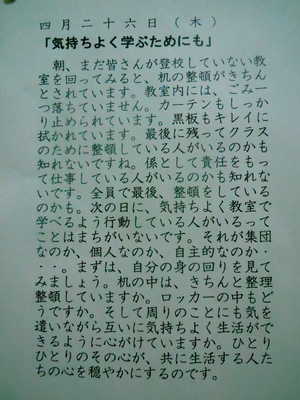 四月二十六日(木)
「気持ちよく学ぶためにも」
朝、まだ皆さんが登校していない教
室を回ってみると、机の整頓がきちん
とされています。教室内には、ごみ一
つ落ちていません。カーテンもしっか
り止められています。黒板もキレイに
拭かれています。最後に残ってクラス
のために整頓している人がいるのかも
知れないですね。係として責任をもっ
て仕事している人がいるのかも知れな
いです。全員で最後、整頓をしている
のかも。次の日に、気持ちよく教室で
学べるよう行動している人がいるって
ことはまちがいないです。それが集団
なのか、個人なのか、自主的なのか・
・・。まずは、自分の身の回りを見て
みましょう。机の中は、きちんと整理
整頓していますか。ロッカーの中もど
うですか。そして周りのことにも気を
遣いながら互いに気持ちよく生活がで
きるように心がけていますか。ひとり
ひとりのその心が、共に生活する人た
ちの心を穏やかにするのです。